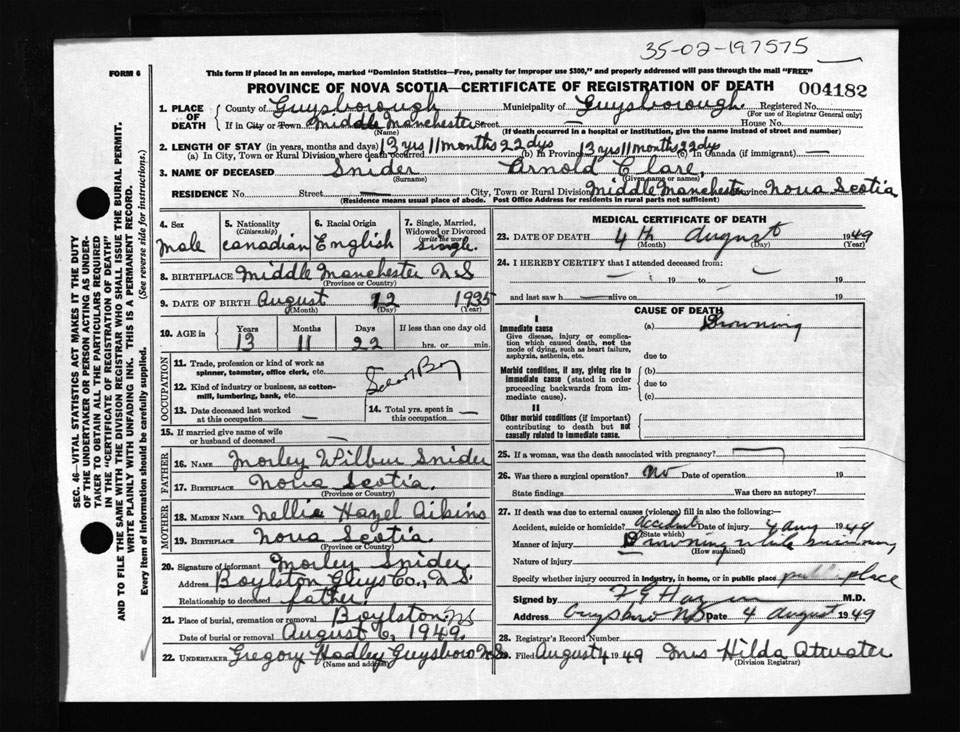 35-02-197575
FORM 6
This form if placed in an envelope, marked "Dominion Statistics—Free, penalty for improper use $300," and properly addressed will pass through the mail "FREE"
PROVINCE OF NOVA SCOTIA—CERTIFICATE OF REGISTRATION OF DEATH 004182
1. PLACE OF DEATH County of Guysborough Municipality of Guysborough Registered No.
(For use of Registrar General only)
If in City or Town Middle Manchester Street House No.
(Name) (If death occurred in a hospital or institution, give the name instead of street and number)
2. LENGTH OF STAY (in years, months and days) 13 yrs 11 months 22 dys
(a) In City, Town or Rural Division where death occurred (b) In Province 13 yrs 11 months 22 dys (c) In Canada (if immigrant) —
3. NAME OF DECEASED Snider Arnold Clare,
(Surname) (Given name or names)
RESIDENCE No. Street City, Town or Rural Division Middle Manchester Province Nova Scotia
(Residence means usual place of abode. Post Office Address for residents in rural parts not sufficient)
4. Sex 5. Nationality (Citizenship) 6. Racial Origin 7. Single, Married, Widowed or Divorced (write the word)
Male Canadian English Single.
8. BIRTHPLACE Middle Manchester N S
(Province or Country)
9. DATE OF BIRTH August 12 1935
(Month) (Day) (Year)
10. AGE in Years Months Days If less than one day old
13 11 22 hrs. or min.
OCCUPATION
11. Trade, profession or kind of work as spinner, teamster, office clerk, etc.
School Boy
12. Kind of industry or business, as cotton-mill, lumbering, bank, etc.
13. Date deceased last worked at this occupation — 14. Total yrs. spent in this occupation —
15. If married give name of wife or husband of deceased —
FATHER
16. NAME Morley Wilbur Snider
17. BIRTHPLACE Nova Scotia.
(Province or Country)
MOTHER
18. MAIDEN NAME Nellie Hazel Aikins
19. BIRTHPLACE Nova Scotia.
(Province or Country)
20. Signature of informant Morley Snider
Address Boylston Guys Co., N.S.
Relationship to deceased father.
21. Place of burial, cremation or removal Boylston NS
Date of burial or removal August 6, 1949.
22. UNDERTAKER Gregory Hadley Guysboro N.S.
(Name and address)
MEDICAL CERTIFICATE OF DEATH
23. DATE OF DEATH 4th August 1949
(Month) (Day) (Year)
24. I HEREBY CERTIFY that I attended deceased from:
19 to 19
and last saw h alive on 19
CAUSE OF DEATH
I
Immediate cause (a) Drowning
Give disease, injury or complication which caused death, not the mode of dying, such as heart failure, asphyxia, asthenia, etc.
due to
Morbid conditions, if any, giving rise to immediate cause (stated in order proceeding backwards from immediate cause).
(b)
due to
(c)
II
Other morbid conditions (if important) contributing to death but not causally related to immediate cause.
25. If a woman, was the death associated with pregnancy?
26. Was there a surgical operation? No Date of operation 19
State findings Was there an autopsy?
27. If death was due to external causes (violence) fill in also the following:—
Accident, suicide or homicide? accident Date of injury 4 Aug 1949
(State which)
Manner of injury Drowning while swimming
(How sustained)
Nature of injury
Specify whether injury occurred in industry, in home, or in public place public place
Signed by M.D.
Address Guysboro NS Date 4 August 1949
28. Registrar's Record Number
29. Filed August 4 1949 Mrs Hilda Atwater
(Division Registrar)
SEC. 46—VITAL STATISTICS ACT MAKES IT THE DUTY
OF THE UNDERTAKER OR PERSON ACTING AS UNDER-
TAKER TO OBTAIN ALL THE PARTICULARS REQUIRED
IN THE "CERTIFICATE OF REGISTRATION OF DEATH"
AND TO FILE THE SAME WITH THE DIVISION REGISTRAR WHO SHALL ISSUE THE BURIAL PERMIT.
WRITE PLAINLY WITH UNFADING INK. THIS IS A PERMANENT RECORD.
Every item of information should be carefully supplied. (See reverse side for instructions.)